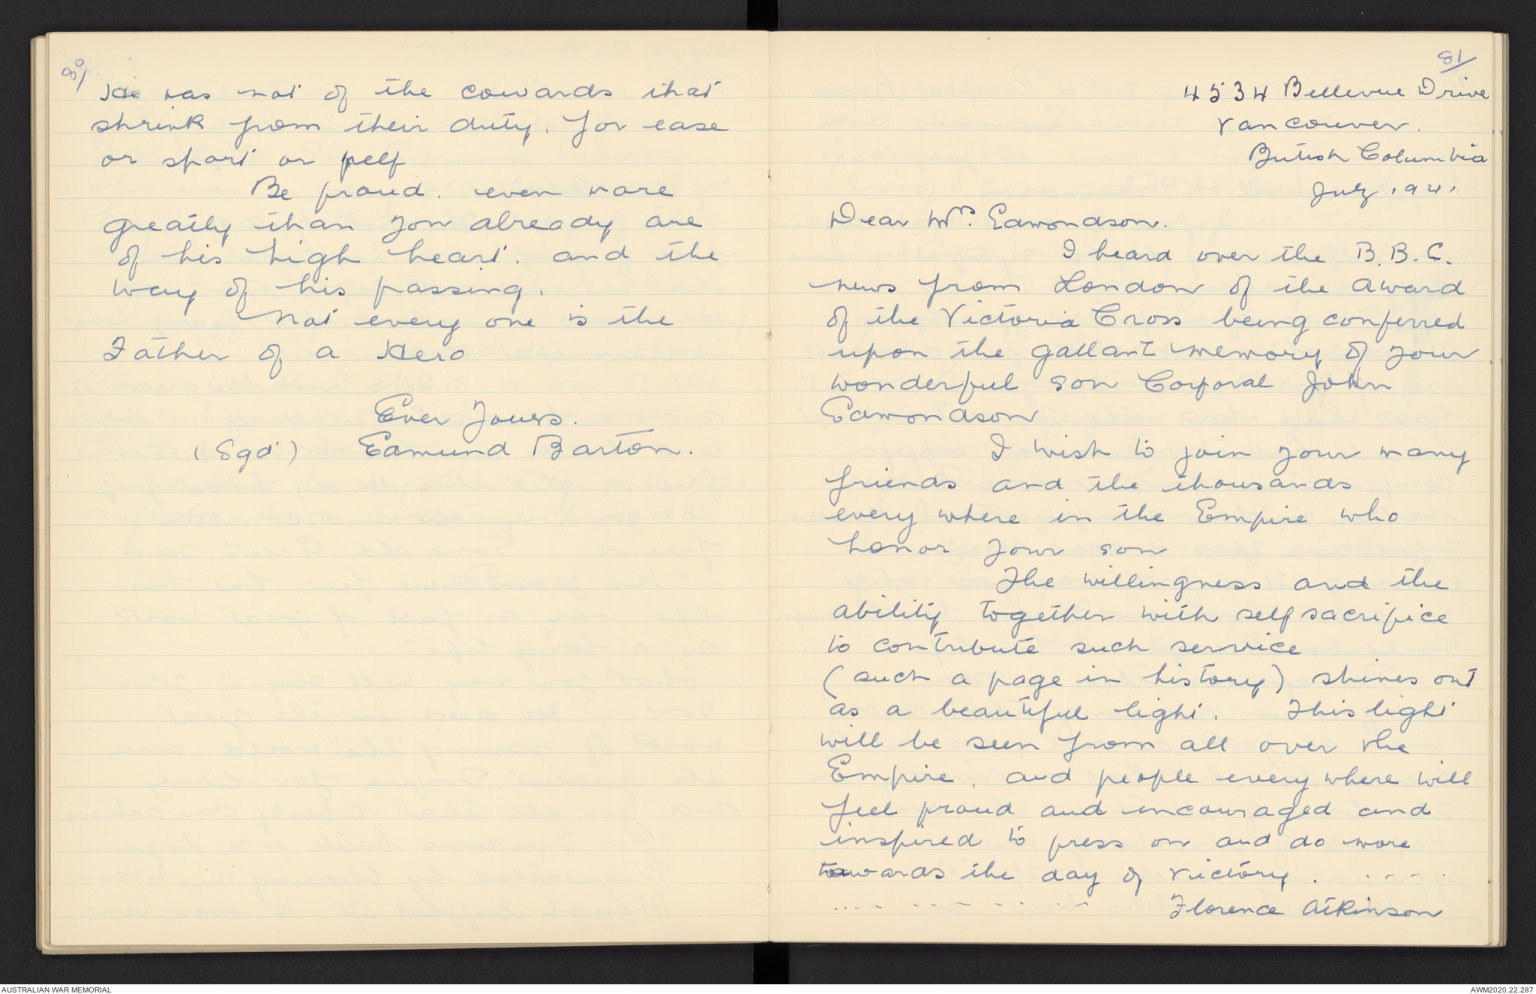 80/
He was not of the cowards that
shrink from their duty. for ease
or sport or pelf
Be proud. even more
greatly than you already are
of his high heart. and the
way of his passing.
Not every one is the
Father of a Hero
Ever Yours.
(Sgd) Edmund Barton.
81/
4534 Bellevue Drive
Vancouver.
British Columbia
July 1941
Dear Mrs. Edmondson.
I heard over the B.B.C.
news from London of the award
of the Victoria Cross being conferred
upon the gallant memory of your
wonderful son Corporal John
Edmondson
I wish to join your many
friends and the thousands
every where in the Empire who
honor your son
The willingness and the
ability together with self sacrifice
to contribute such service
(such a page in history) shines out
as a beautiful light. This light
will be seen from all over the
Empire. and people every where will
feel proud and encouraged and
inspired to press on and do more
towards the day of victory. . . . . .
.... ... . . . . Florence Atkinson
AUSTRALIAN WAR MEMORIAL
AWM2020.22.287